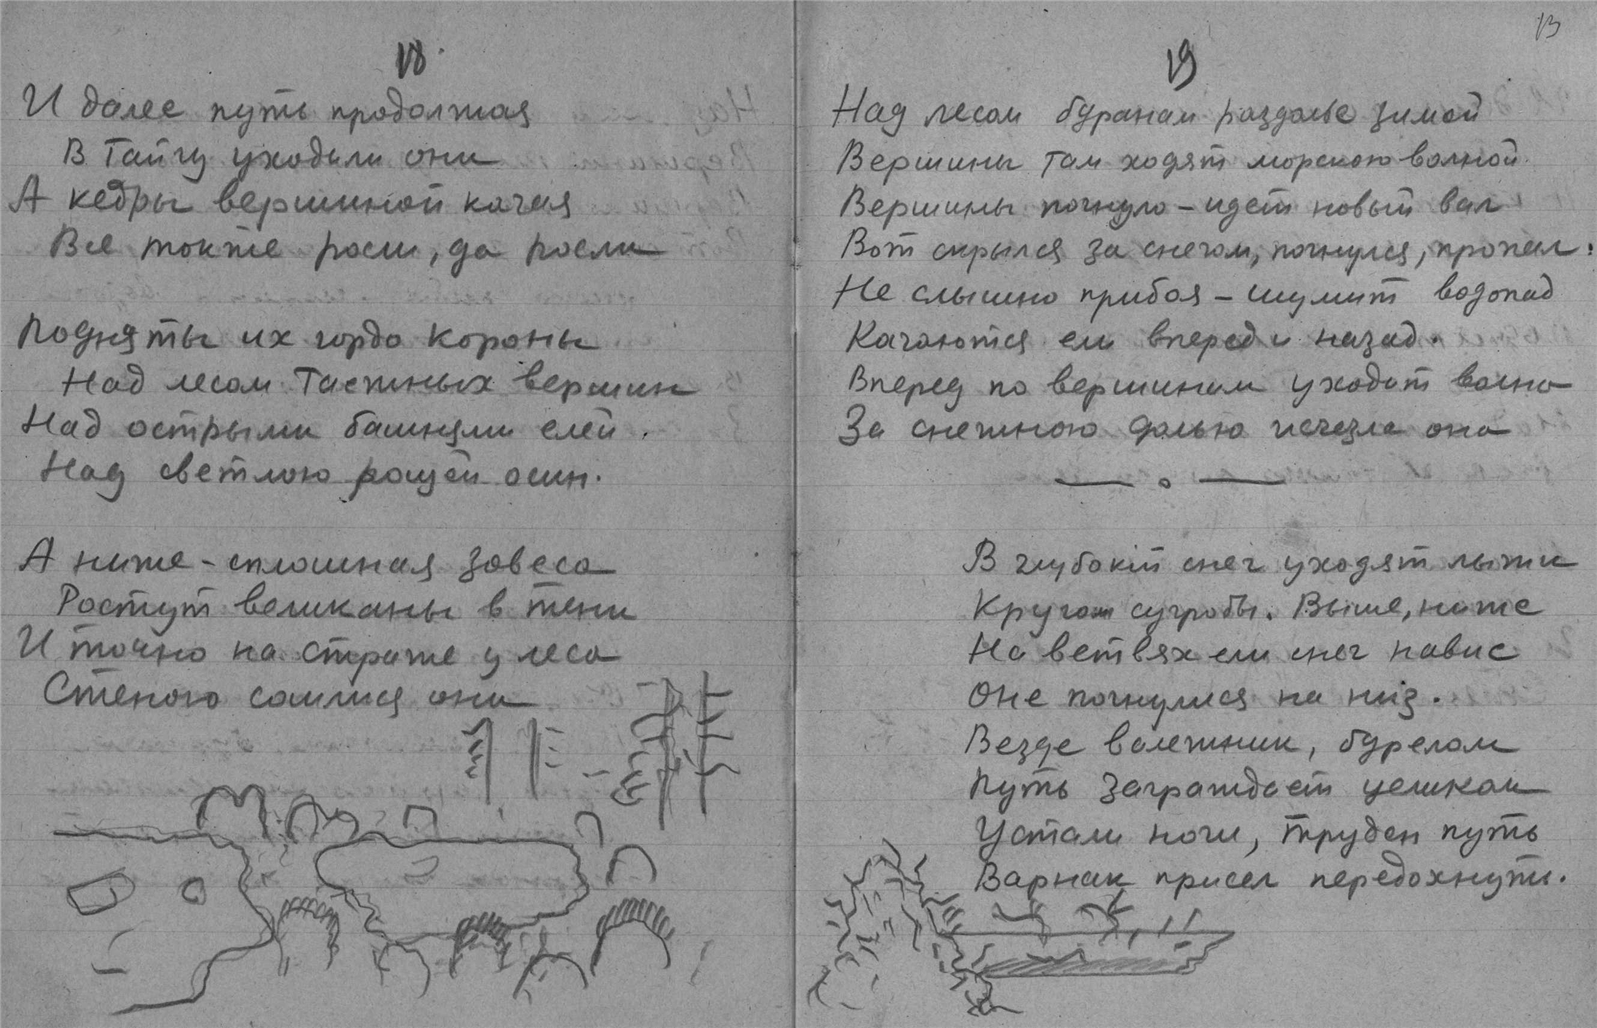 18.
И далее путь продолжая
В Тайгу уходили они
А кедры вершиной качая
Все также росли, да росли
Подняты их гордо короны
Над лесом Таежных вершин
Над острыми башнями елей.
Над светлою рощей осин.
А ниже - сплошная завеса
Ростут великаны в тени
И точно на страже у леса
Стеною сошлися они
13
19
Над лесом буранам раздолье зимой
Вершины там ходят морскою волной.
Вершины погнуло - идет новый вал
Вот скрылся за снегом, погнулся, пропал:
Не слышно прибоя - шумит водопад
Качаются ели вперед и назад.
Вперед по вершинам уходит волна
За снежною далью исчезла она
В глубокий снег уходят лыжи
Кругом сугробы. Выше, ниже
На ветвях ели снег навис
Оне погнулися на низ.
Везде валежник, бурелом
Путь заграждает целиком
Устали ноги, труден путь
Варнак присел передохнуть.